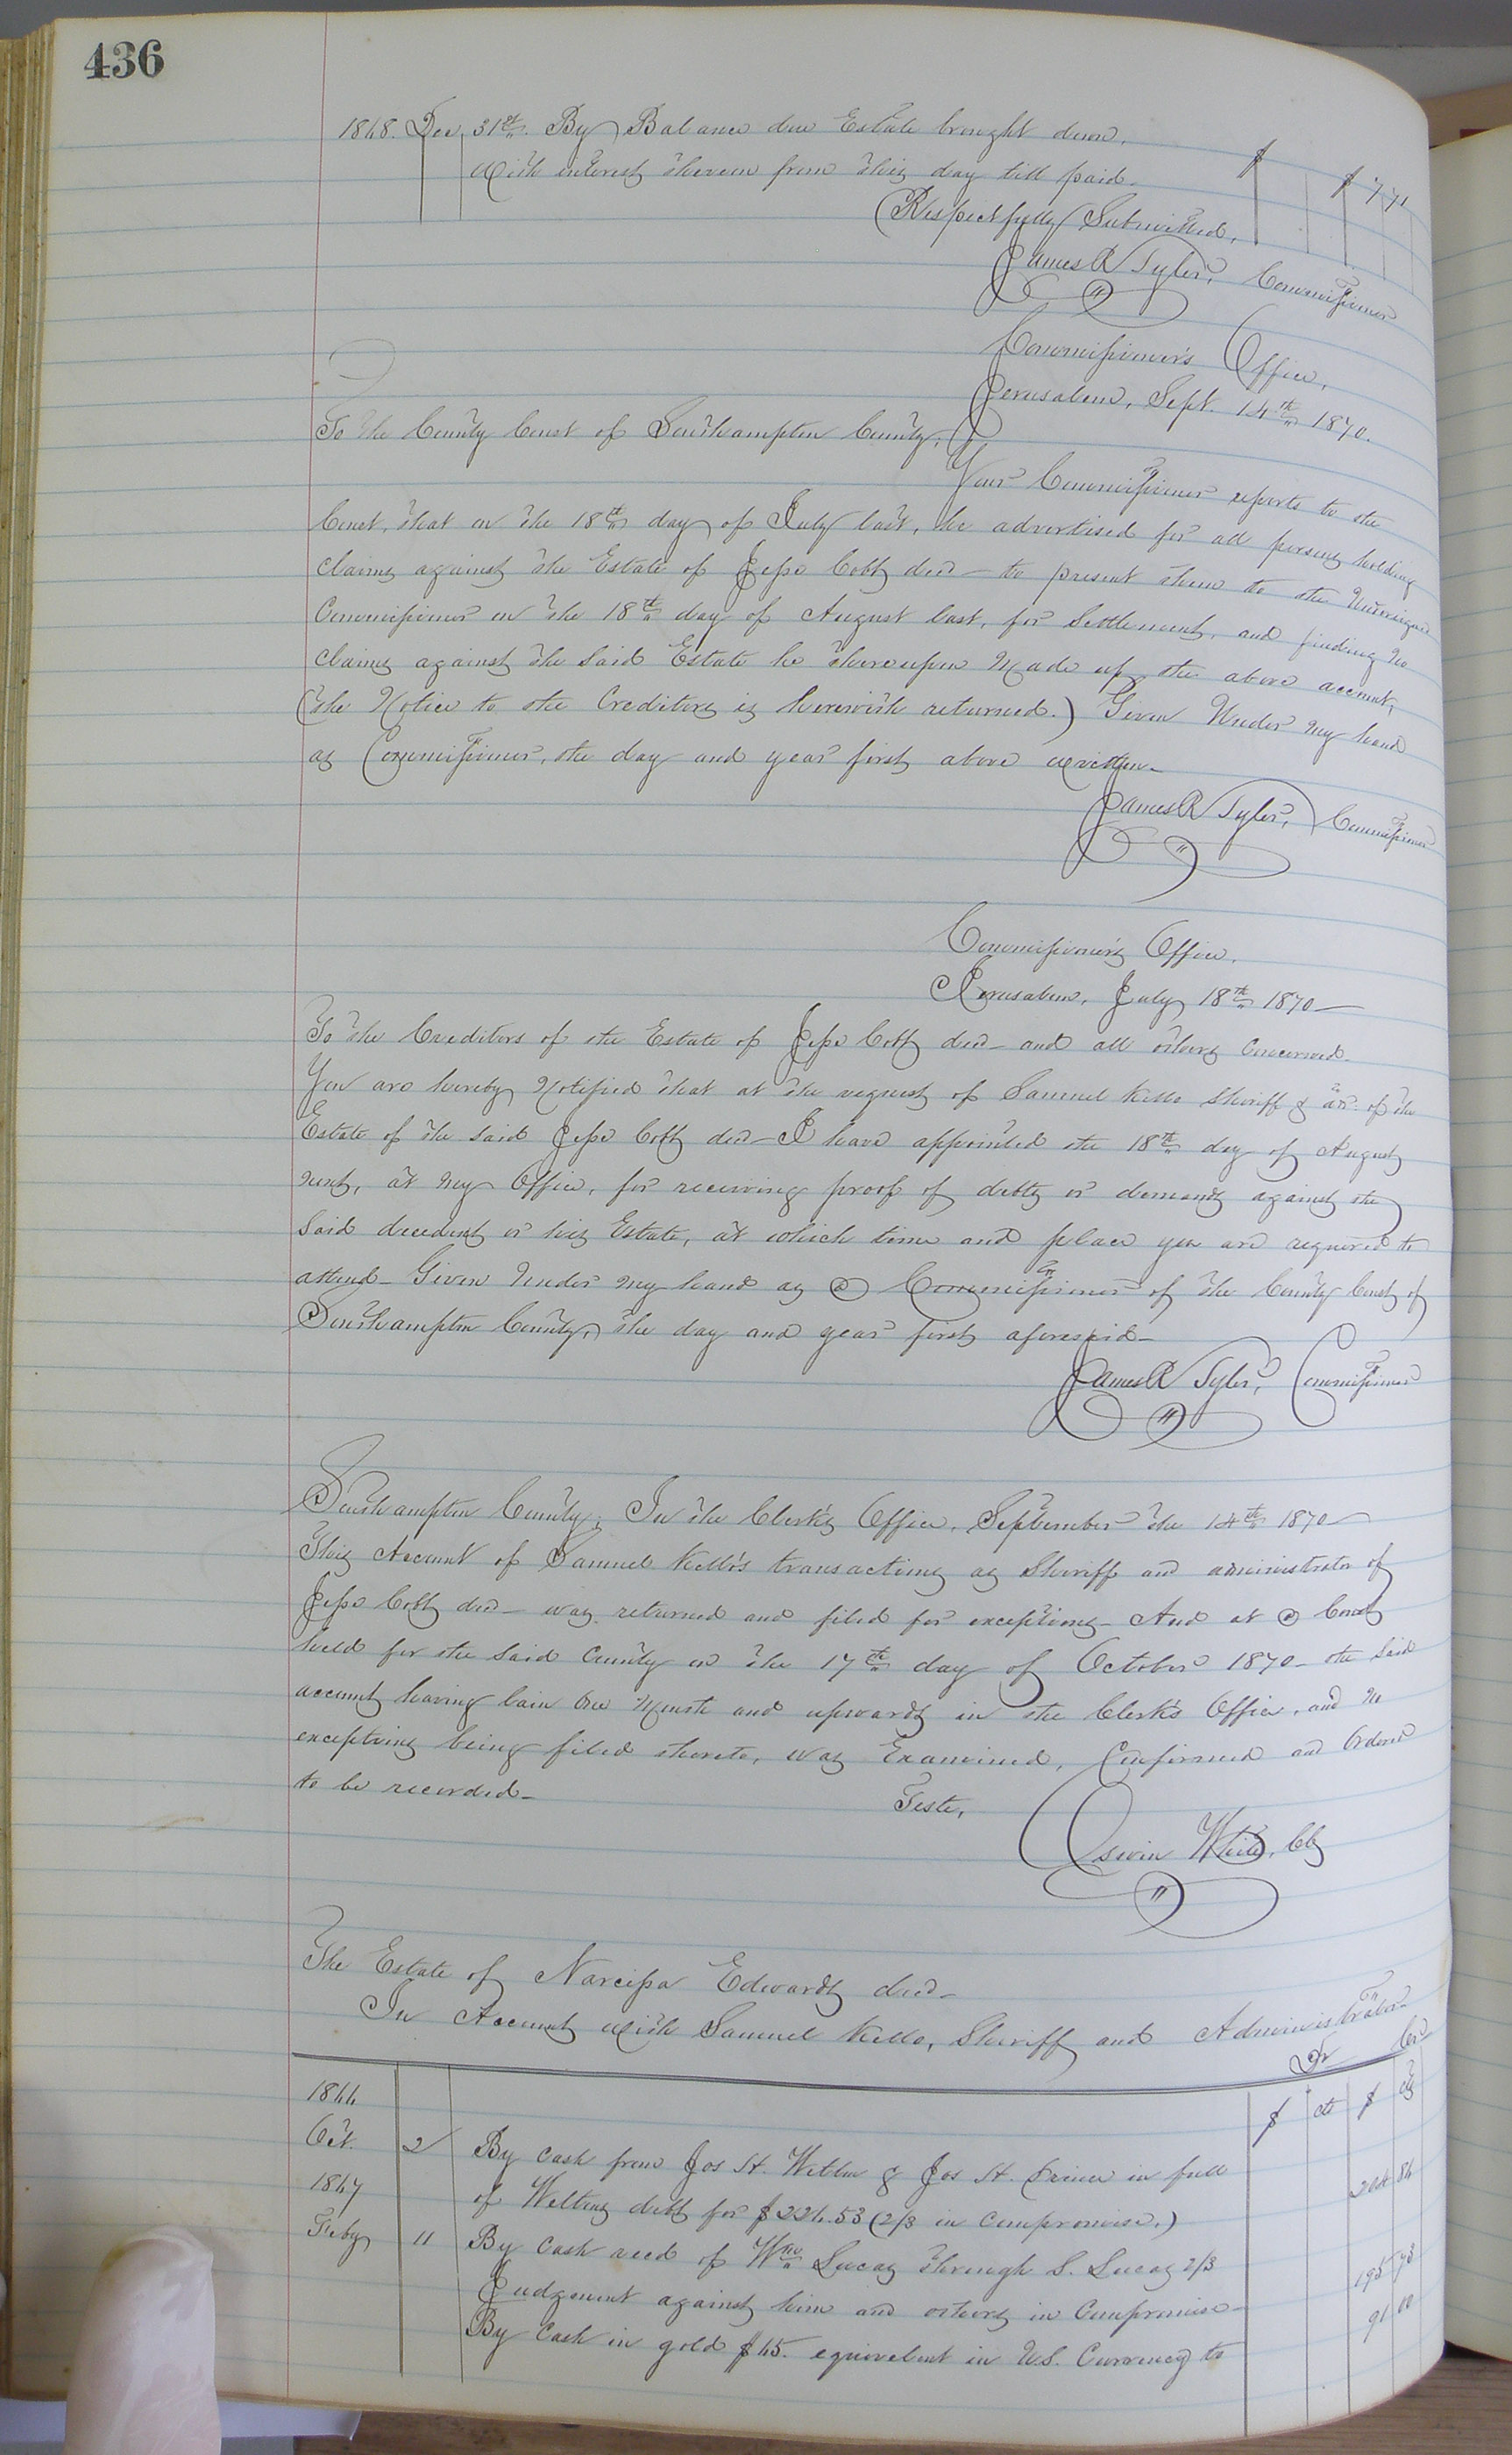 436
1868. Dec. 31st. By Balance due Estate brought down,
with interest thereon from this day till paid. $ $ 771
Respectfully Submitted,
James R Tyler, Commissioner
Commissioner's Office,
Jerusalem, Sept. 14th 1870.
To the County Court of Southampton County,
Your Commissioner reports to the
Court, that on the 18th day of July last, he advertised for all persons holding
claims against the Estate of Jesse Cobb decd- to present them to the
Commissioner on the 18th day of August last, for Settlement, and finding no
claims against the said Estate he thereupon made up the above account,
(the Notice to the Creditors is herewith returned.) Given Under my hand
as Commissioner, the day and year first above written-
James R Tyler, Commissioner
Commissioner's Office,
Jerusalem, July 18th 1870-
To the Creditors of the Estate of Jesse Cobb decd- and all others concerned-
You are hereby Notified that at the request of Samuel Kello Sheriff & adr. of the
Estate of the said Jesse Cobb decd- I have appointed the 18th day of August
next, at my Office, for receiving proof of debts or demands against the
said decedent or his Estate, at which time and place you are required to
attend- Given Under my hand as a Commissioner of the County Court of
Southampton County, the day and year first aforesaid-
James R Tyler, Commissioner
Southampton County; In the Clerk's Office, September the 14th 1870-
This Account of Samuel Kello's transactions as Sheriff and administrator of
Jesse Cobb decd- was returned and filed for exceptions- And at a Court
held for the said County on the 17th day of October 1870- the said
account having lain one Month and upwards in the Clerk's Office, and no
exceptions being filed thereto, was Examined, Confirmed and Ordered
to be recorded-
Teste,
White, Clk
The Estate of Narcissa Edwards decd-
In Account with Samuel Kello, Sheriff and Administrator-
Dr Cr
1866 $ cts $ cts
Oct. 2 By Cash from Jos H. & Jos H. Prince in full
1867 of debt for $226.53 (2/3 in Compromise.) 204 86
Feby 11 By Cash recd of Wm Lucas through S. Lucas 2/3
Judgement against him and others in Compromise- 195 78
By Cash in gold $65. equivalent in U.S. Currency to 91 00